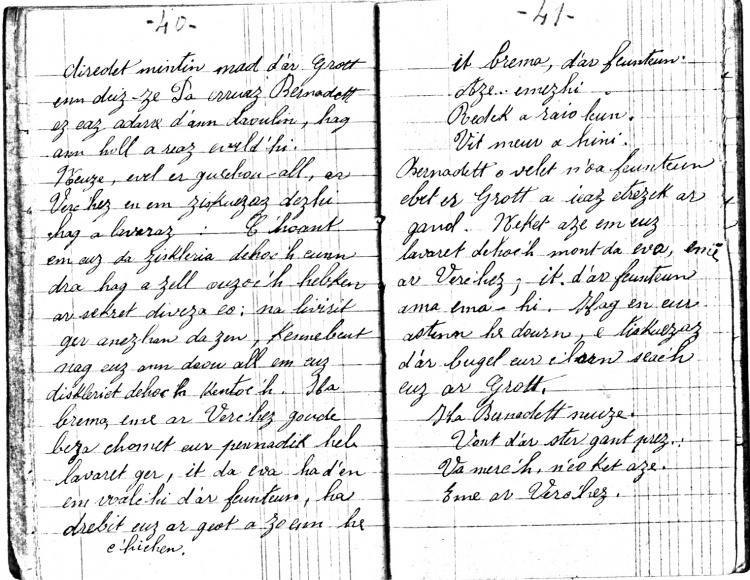 -40-
diredet mintin mad d'ar Grott
enn deiz-ze Pa erruaz Bernadett
ez eaz adarre d'ann daoulin, hag
ann holl a reaz eveld'hi.
Neuze, evel er guechou-all, ar
Verc'hez en em ziskuezaz dezhi
hag a lavaraz : C'hoant
em euz da ziskleria dehoc'h eunn
dra hag a zell ouzoc'h hebken
ar sekret diveza eo: na livirit
ger anezhan da zen, kennebeut
hag euz ann daou all em euz
diskleriet dehoc'h kentoc'h. Ha
brema, eme ar Verc'hez goude
beza chomet eur pennadik heb
lavaret ger, it da eva ha d'en
em walc'hi d'ar feunteun, ha
drebit euz ar geot a zo enn he
c'hichen.
-41-
it brema, d'ar feunteun.
Aze.. emezhi
Redek a raio leun.
Vit meur a hini.
Bernadett o velet n'oa feunteun
ebet er Grott a ieaz etrezek ar
gand. Neket aze em euz
lavaret dehoc'h mont da eva, emē
ar Verc'hez; it d'ar feunteun
ama ema-hi. Hag en eur
astenn he dourn, e tiskuezaz
d'ar bugel eur c'horn seac'h
euz ar Grott.
Ha Bernadett neuze.
Vont d'ar ster gant prez.:
Va merc'h, n'eo ket aze.
Eme ar Verc'hez.